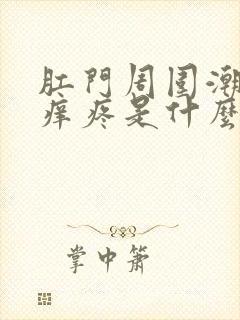 肛門周圍潮
痒疼是什麼
掌中簫